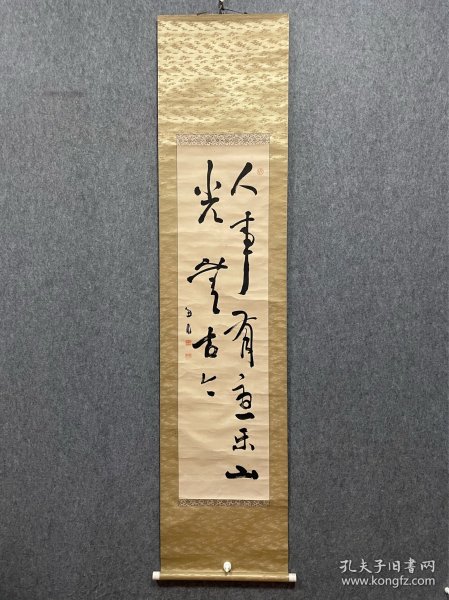 人事有憂樂山
光無古今
孔夫子旧书网
www.kongfz.com